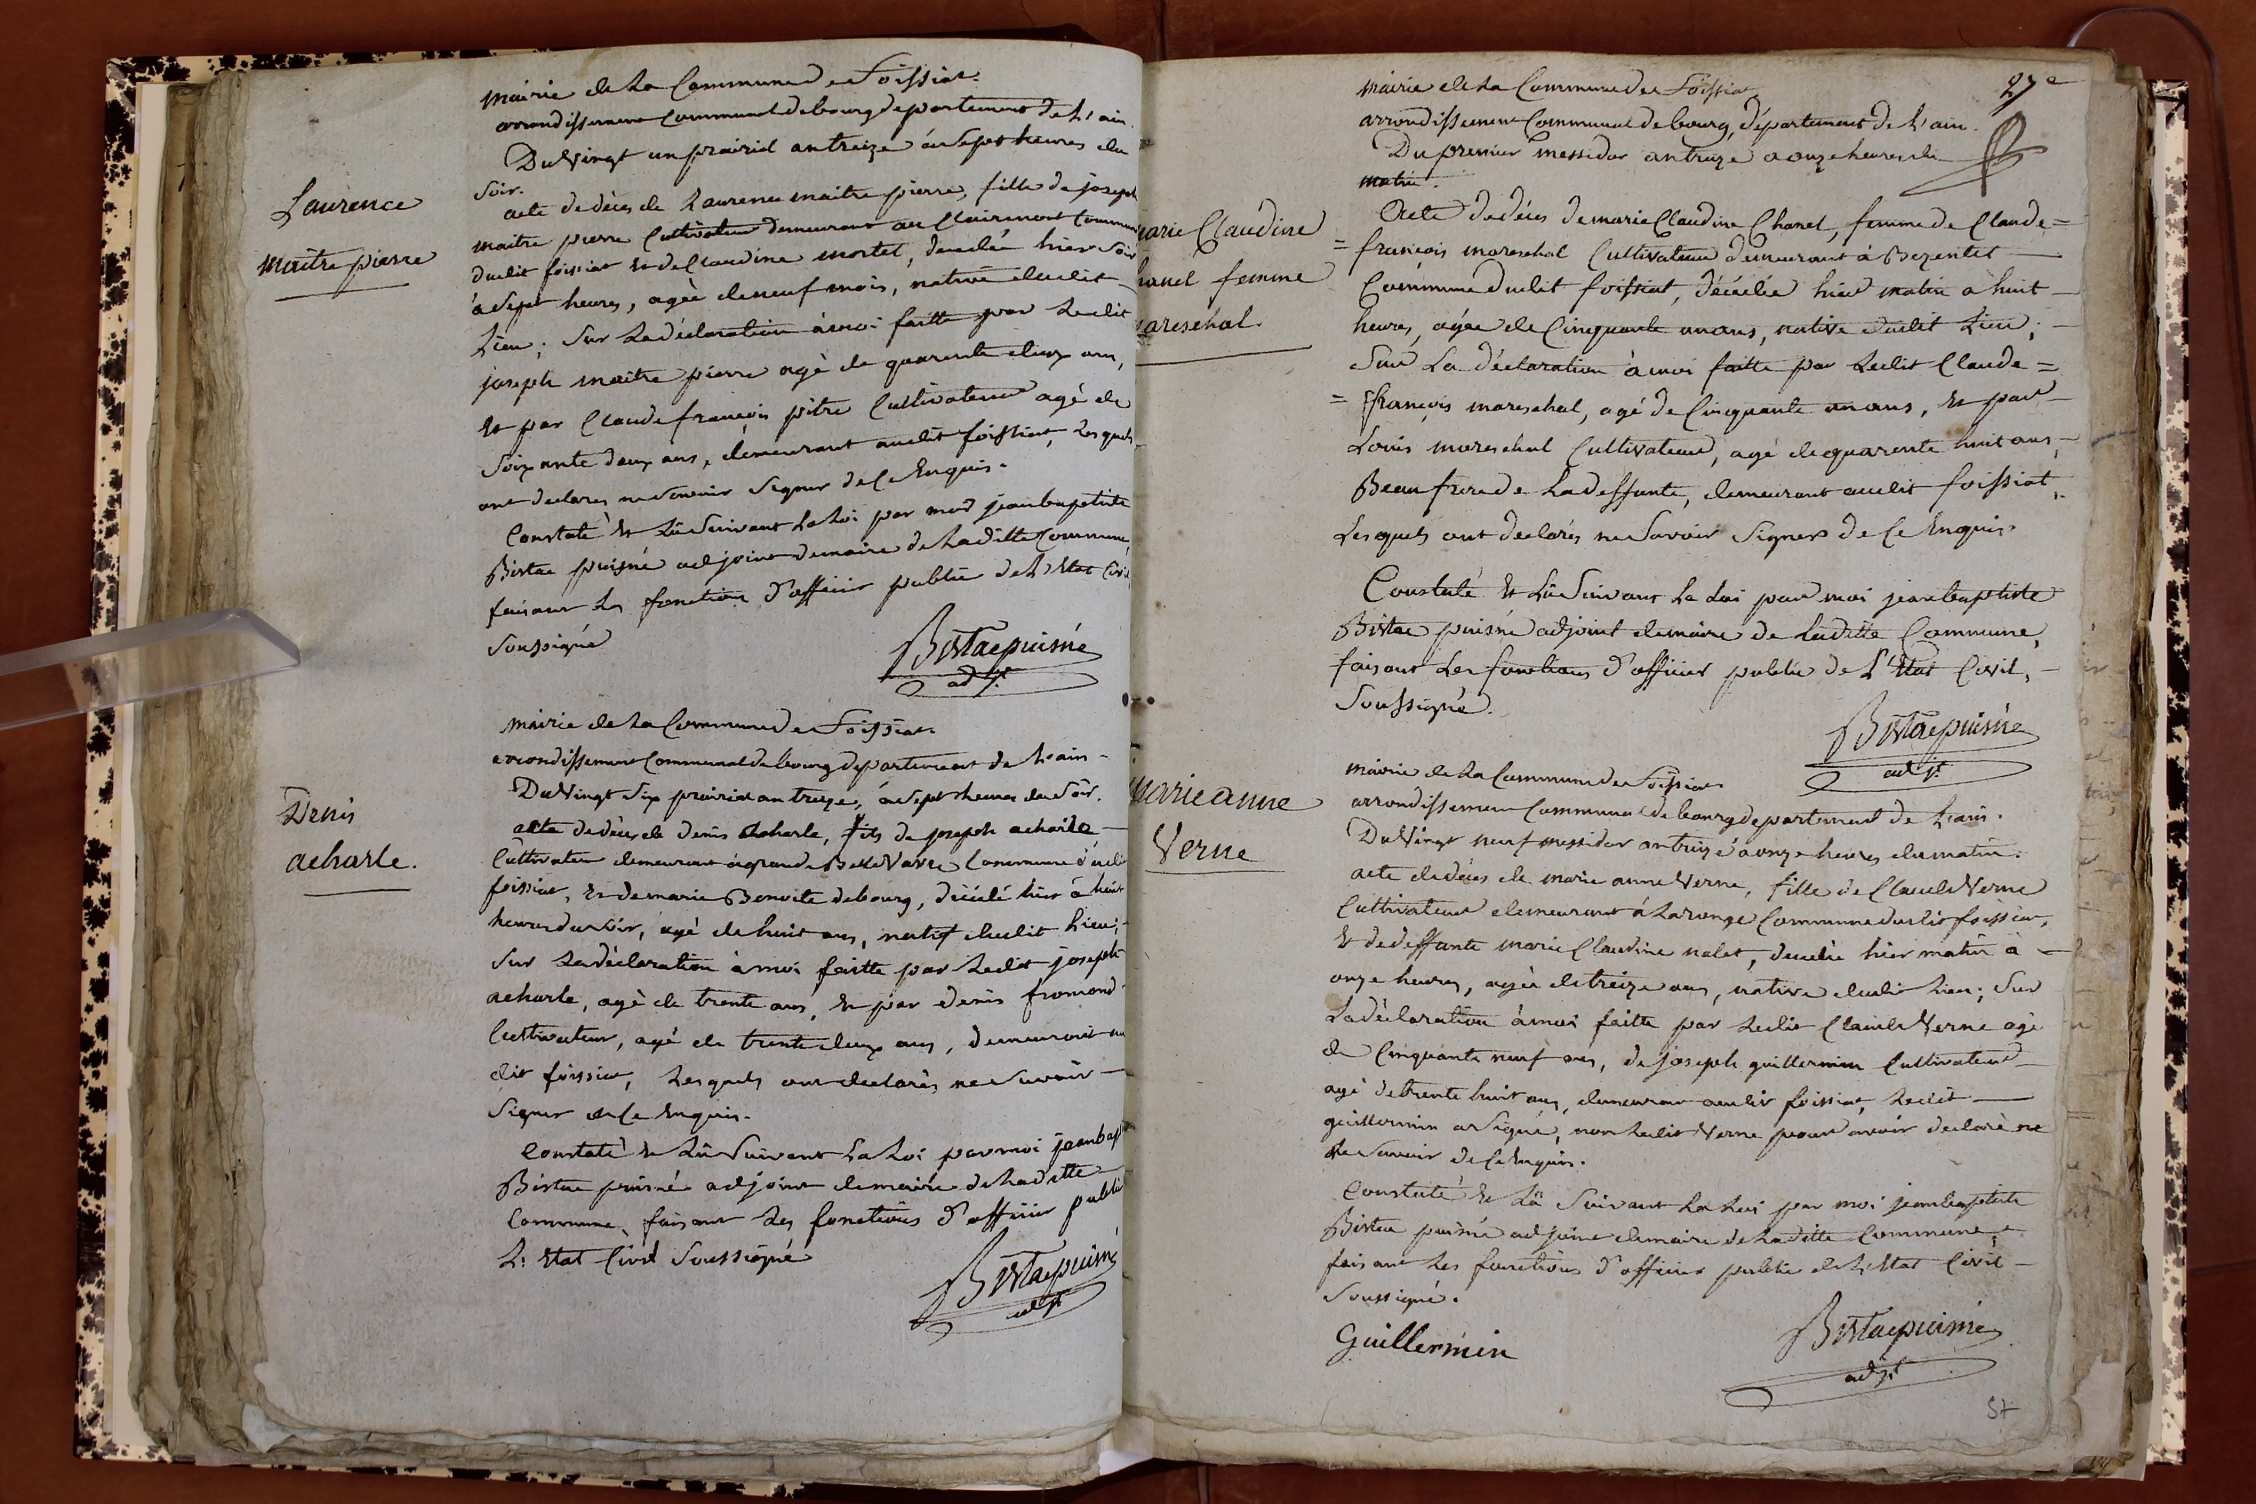 mairie de La Commune de Foissiat.
arrondissement Communal de bourg departement de L'ain.
Du Vingt un prairial an treize à Sept heures du
Soir.
Laurence
maitre pierre
acte de décès de Laurence maitre pierre, fille de joseph
maitre pierre Cultivateur demeurant au Clairmont Commune
dudit foissiat et de Claudine mortel, décédée hier Soir
à Sept heures, agée de neuf mois, native dudit
Lieu; Sur La déclaration à moi faitte par Ledit
joseph maitre pierre agé de quarente deux ans,
Et par Claude françois pitre Cultivateur agé de
Soixante deux ans, demeurant audit foissiat, Lesquels
ont declarés ne Savoir Signer de Ce Enquis.
Constaté Et Lû Suivant La Loi par moi jean baptiste
Bistac puisné adjoint de maire de Laditte Commune,
faisant Les fonctions d'officier public de L'Etat Civil
Soussigné
Bistac puisné
adjt
mairie de La Commune de Foissiat.
arrondissement Communal de bourg departement de L'ain.
Du Vingt Six prairial an treize, à Sept heures du Soir.
Denis
acharle.
acte de décès de denis acharle, fils de joseph acharle
Cultivateur demeurant à grande Belle Vavre Commune dudit
foissiat, Et de marie Benoite debourg, décédé hier à huit
heures du Soir, agé de huit ans, natif dudit Lieu;
Sur La déclaration à moi faitte par Ledit joseph
acharle, agé de trente ans, Et par denis fromond
Cultivateur, agé de trente deux ans, demeurant au
dit foissiat, Lesquels ont declarés ne Savoir
Signer de Ce Enquis.
Constaté Et Lû Suivant La Loi par moi jean bapt
Bistac puisné adjoint de maire de Laditte
Commune, faisant Les fonctions d'officier public
L'Etat Civil Soussigné
Bistac puisné
adjt
27e
mairie de La Commune de Foissiat
arrondissement Communal de bourg, département de L'ain.
Du premier messidor an treize a onze heures du
matin.
marie Claudine
hanel femme
areschal.
Acte de décès de marie Claudine Chanel, femme de Claude =
= françois mareschal Cultivateur demeurant à Bezentet
Commune dudit foissiat, décédée hier matin a huit
heures, agée de Cinquante un ans, native dudit Lieu;
Sur La déclaration à moi faitte par Ledit Claude =
= françois mareschal, agé de Cinquante un ans, Et par
Louis mareschal Cultivateur, agé de quarente huit ans,
Beau frere de La deffunte, demeurant audit foissiat,
Lesquels ont declarés ne Savoir Signer de Ce Enquis.
Constaté Et Lû Suivant La Loi par moi jean baptiste
Bistac puisné adjoint de maire de Laditte Commune,
faisant Les fonctions d'officier public de L'Etat Civil,
Soussigné.
Bistac puisné
adjt
mairie de La Commune de Foissiat
arrondissement Communal de bourg departement de L'ain.
Du Vingt neuf messidor an treize à onze heures du matin.
marie anne
Verne
acte de décès de marie anne Verne, fille de Claude Verne
Cultivateur demeurant à La ronge Commune dudit foissiat,
Et de deffunte marie Claudine nalet, décédée hier matin à
onze heures, agée de treize ans, native dudit Lieu; Sur
La déclaration à moi faitte par Ledit Claude Verne agé
de Cinquante neuf ans, de joseph guillermin Cultivateur
agé de trente huit ans, demeurant audit foissiat, Ledit
guillermin a Signé, non Ledit Verne pour avoir declaré ne
Le Savoir de Ce Enquis.
Constaté Et Lû Suivant La Loi par moi jean baptiste
Bistac puisné adjoint de maire de Laditte Commune,
faisant Les fonctions d'officier public de L'Etat Civil
Soussigné.
Guillermin
Bistac puisné
adjt
57